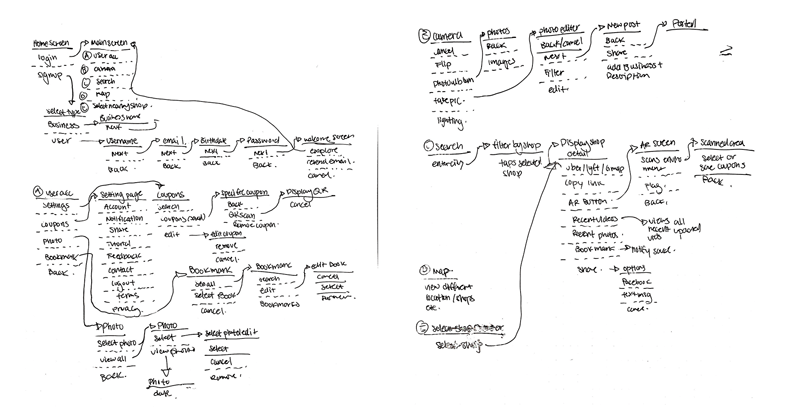 Home screen
login
signup
Main screen
A user acc
B camera
C search
D map
E select nearby shop.
select type
Business
user
Business name
Next
Username
Next
Back
email
Next
Back.
Birthdate
Next
Back
Password
Next
Back.
welcome screen
explore
resend email.
cancel.
A user acc
Settings
coupons
photo
Bookmark
Back
Setting page
Account
Notification
Share
Tutorial
Feedback
contact
Logout
terms
privacy
coupons
search
coupons (saved)
edit
Specific coupon
Back
QR scan
Remove coupon.
Display QR
cancel
edit coupon
remove
cancel.
Bookmark
see all
select Book
cancel.
Bookmark
search
edit
Bookmarks
edit Book
cancel
select
Photo
Select photo
view all
Back.
Photo
Select
view photos
Photo
Select photo/edit
Select
Cancel
remove
B camera
cancel
Flip
photo album
take pic.
lighting.
photos
Back
images
photo editer
Back/cancel
Next
Filter
edit
New post
Back
Share
add Business +
Description
2
C search
enter city
filter by shop
taps selected
shop
Display shop
detail
uber/lyft/gmap
copy link
AR Button
Recent videos
Recent photos.
Bookmark
share
AR screen
Scans enviro
ment
Play
Back.
Scanned area
Select or
save coupons
Back.
views all
recent upload
vids
Notify save.
options
Facebook
texting
cancel
D map
view different
location/shops
etc.
E
select shop